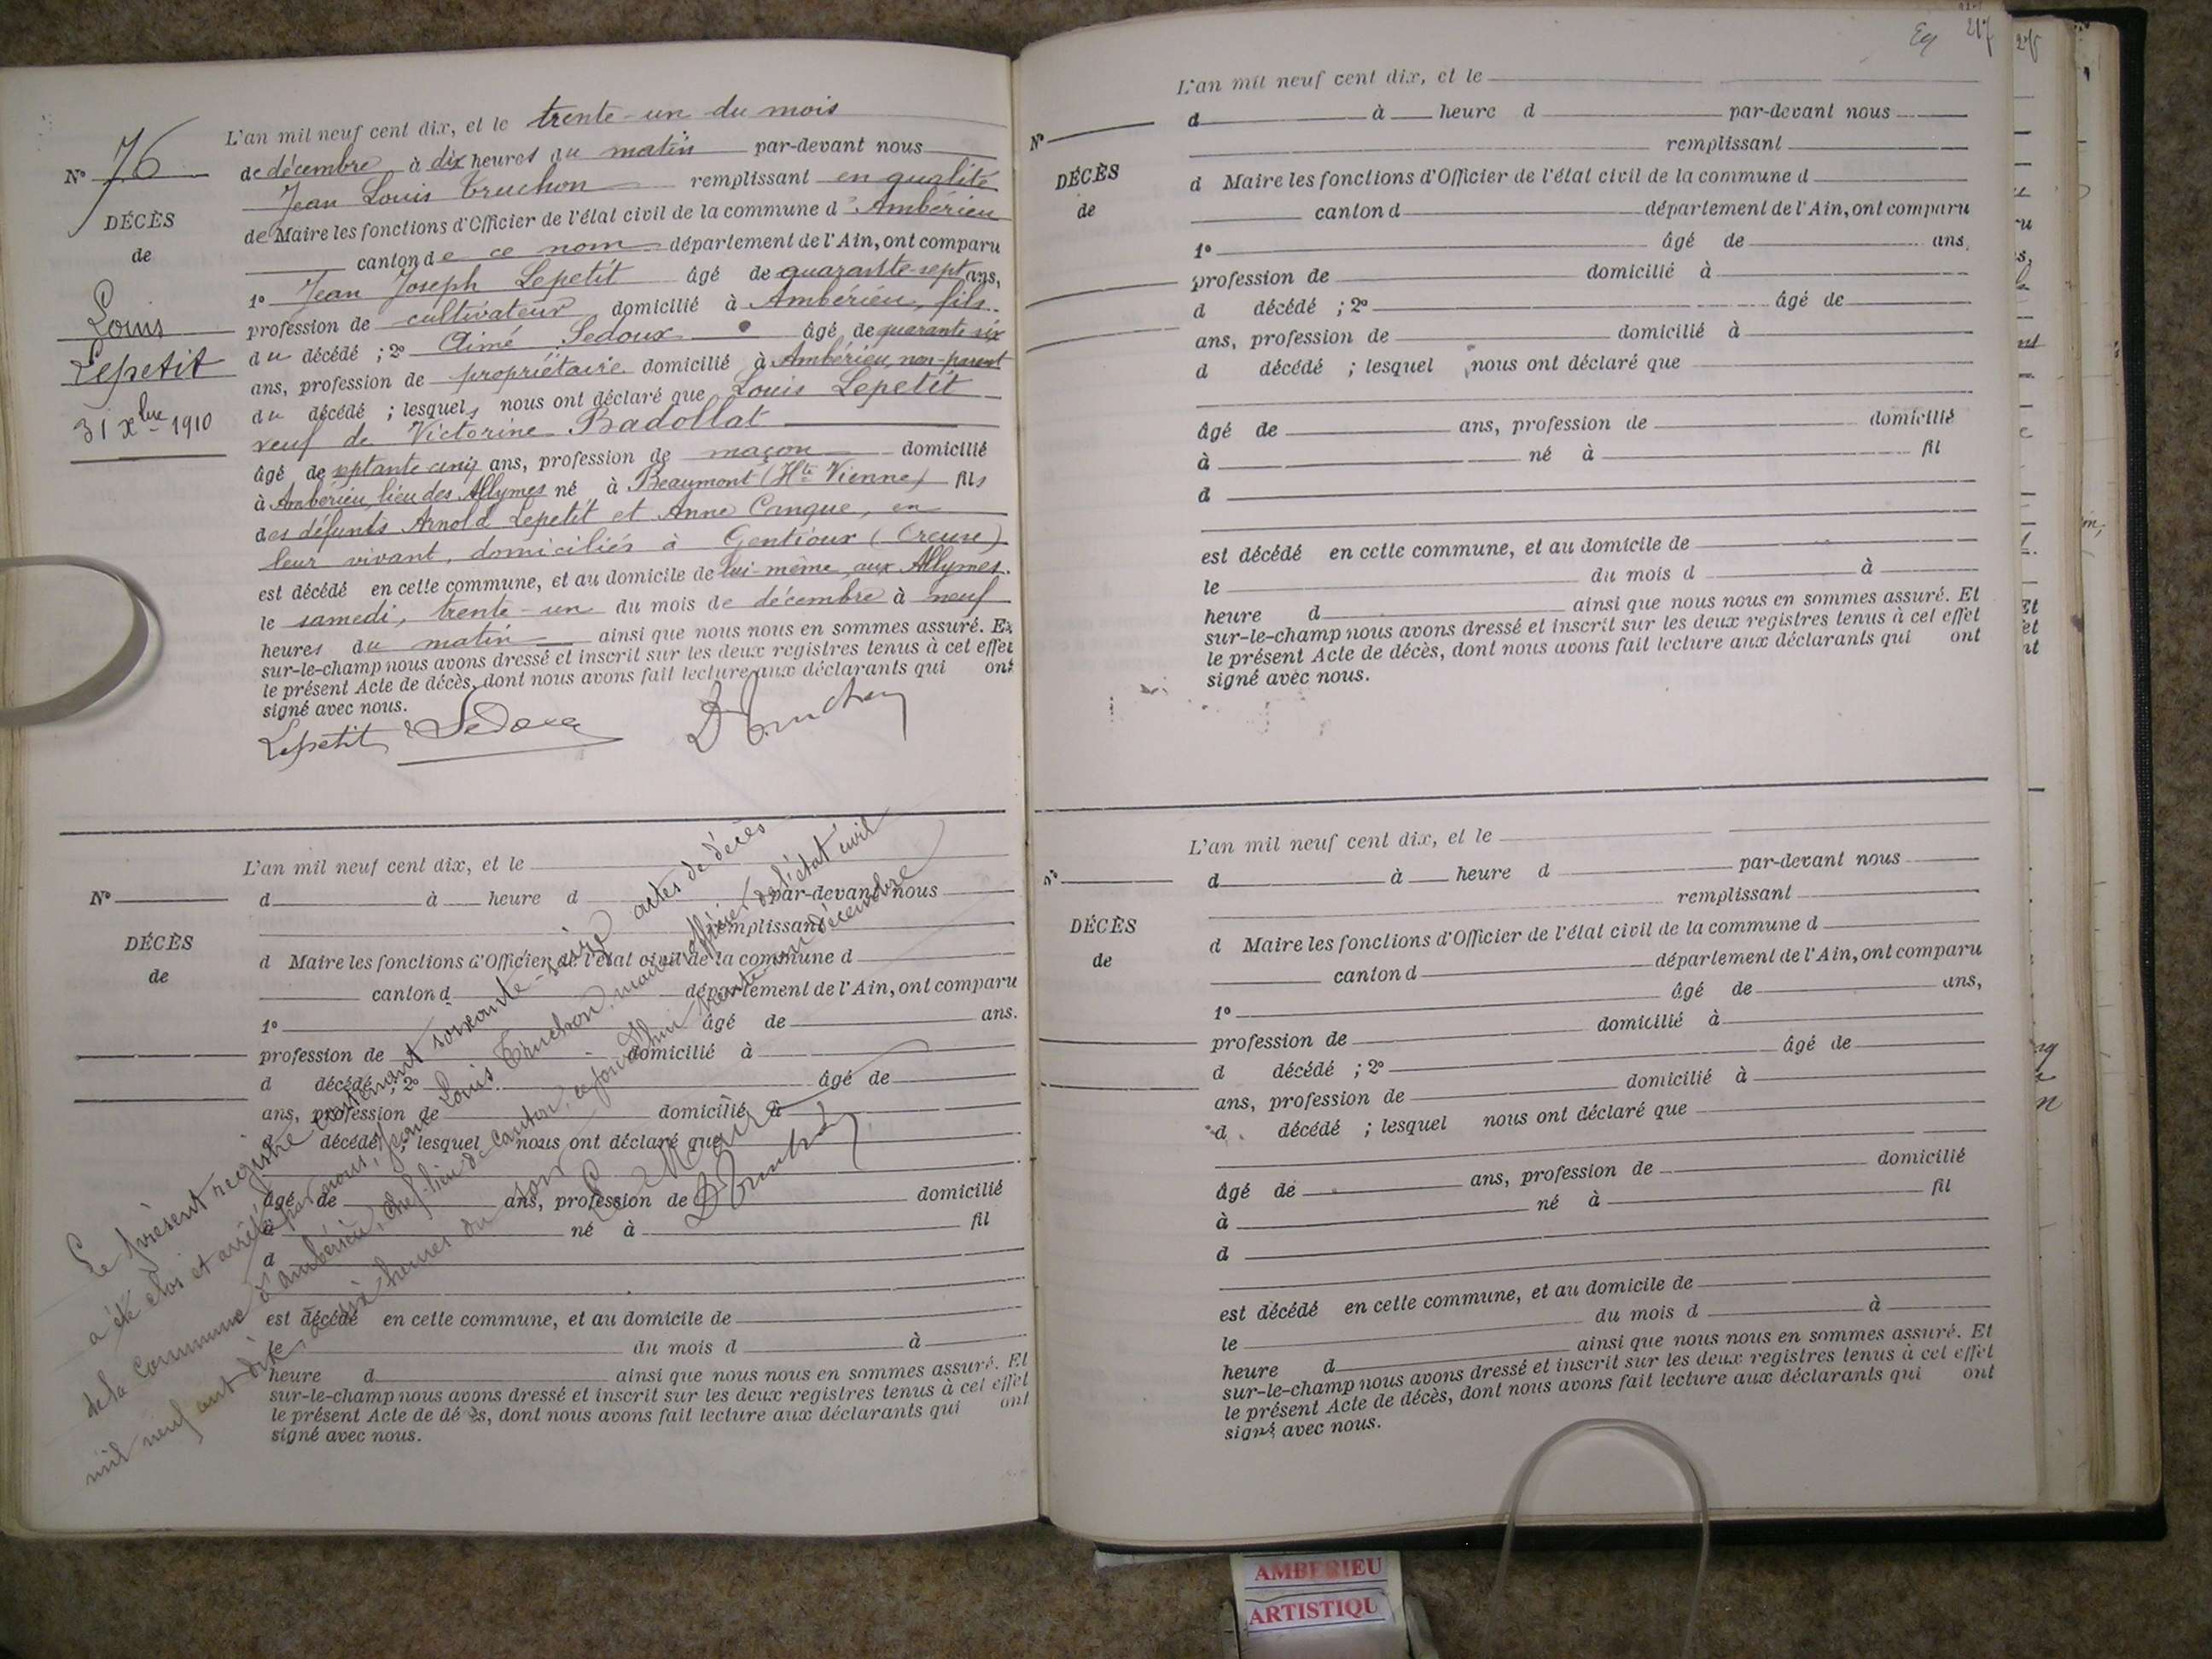 N° 76
DÉCÈS
de
Louis
Lepetit
31 Xbre 1910
L'an mil neuf cent dix, et le trente-un du mois
de décembre à dix heures du matin par-devant nous
Jean Louis Truchon remplissant en qualité
de Maire les fonctions d'Officier de l'état civil de la commune d'Ambérieu
canton de ce nom département de l'Ain, ont comparu
1° Jean Joseph Lepetit âgé de quarante-sept ans,
profession de cultivateur domicilié à Ambérieu, fils
du décédé ; 2° Aimé Sedoux âgé de quarante six
ans, profession de propriétaire domicilié à Ambérieu, non-parent
du décédé ; lesquels nous ont déclaré que Louis Lepetit
veuf de Victorine Badollat
âgé de septante cinq ans, profession de maçon domicilié
à Ambérieu, lieu des Allymes né à Beaumont (Hte Vienne) fils
des défunts Arnold Lepetit et Anne Canque, en
leur vivant, domiciliés à Gentioux (Creuse)
est décédé en cette commune, et au domicile de lui-même, aux Allymes.
le samedi, trente-un du mois de décembre à neuf
heures du matin ainsi que nous nous en sommes assuré. Et
sur-le-champ nous avons dressé et inscrit sur les deux registres tenus à cet effet
le présent Acte de décès, dont nous avons fait lecture aux déclarants qui ont
signé avec nous.
Lepetit Sedoux Truchon
N°
DÉCÈS
de
L'an mil neuf cent dix, et le
d à heure d par-devant nous
remplissant
d Maire les fonctions d'Officier de l'état civil de la commune d
canton d département de l'Ain, ont comparu
1° âgé de ans.
profession de domicilié à
d décédé ; 2° âgé de
ans, profession de domicilié à
d décédé ; lesquel nous ont déclaré que
âgé de ans, profession de domicilié
à né à fil
d
est décédé en cette commune, et au domicile de
le du mois d à
heure d ainsi que nous nous en sommes assuré. Et
sur-le-champ nous avons dressé et inscrit sur les deux registres tenus à cet effet
le présent Acte de décès, dont nous avons fait lecture aux déclarants qui ont
signé avec nous.
Le présent registre contenant soixante-seize actes de décès
a été clos et arrêté par nous, Jean Louis Truchon, maire, officier de l'état civil
de la commune d'Ambérieu, chef-lieu de canton, ce jourd'hui trente-un décembre
mil neuf cent dix, à six heures du soir
Le Maire
Truchon
217
N°
DÉCÈS
de
L'an mil neuf cent dix, et le
d à heure d par-devant nous
remplissant
d Maire les fonctions d'Officier de l'état civil de la commune d
canton d département de l'Ain, ont comparu
1° âgé de ans,
profession de domicilié à
d décédé ; 2° âgé de
ans, profession de domicilié à
d décédé ; lesquel nous ont déclaré que
âgé de ans, profession de domicilié
à né à fil
d
est décédé en cette commune, et au domicile de
le du mois d à
heure d ainsi que nous nous en sommes assuré. Et
sur-le-champ nous avons dressé et inscrit sur les deux registres tenus à cet effet
le présent Acte de décès, dont nous avons fait lecture aux déclarants qui ont
signé avec nous.
N°
DÉCÈS
de
L'an mil neuf cent dix, et le
d à heure d par-devant nous
remplissant
d Maire les fonctions d'Officier de l'état civil de la commune d
canton d département de l'Ain, ont comparu
1° âgé de ans,
profession de domicilié à
d décédé ; 2° âgé de
ans, profession de domicilié à
d décédé ; lesquel nous ont déclaré que
âgé de ans, profession de domicilié
à né à fil
d
est décédé en cette commune, et au domicile de
le du mois d à
heure d ainsi que nous nous en sommes assuré. Et
sur-le-champ nous avons dressé et inscrit sur les deux registres tenus à cet effet
le présent Acte de décès, dont nous avons fait lecture aux déclarants qui ont
signé avec nous.
AMBERIEU
ARTISTIQU